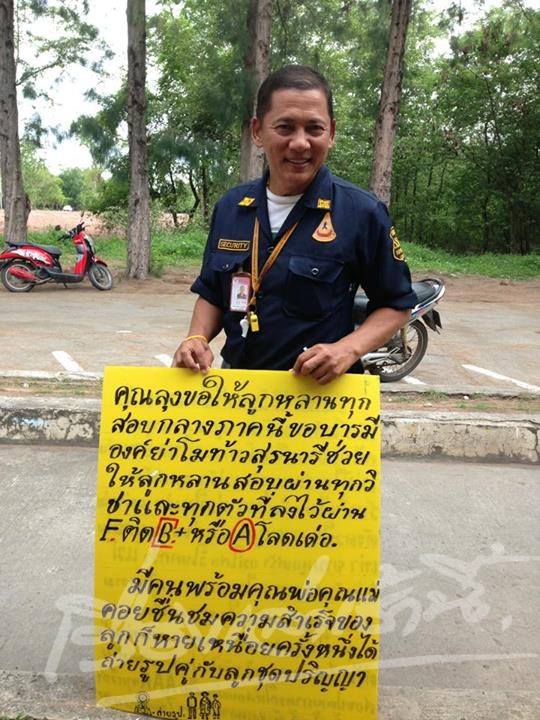 SECURITY
คุณลุงขอให้ลูกหลานทุก
สอบกลางภาคนี้ขอบารมี
องค์ย่าโมท้าวสุรนารีช่วย
ให้ลูกหลานสอบผ่านทุกวิ
ชาและทุกตัวที่ลงไว้ผ่าน
F. ติด B+ หรือ A โลดเด่อ.
มีคนพร้อมคุณพ่อคุณแม่
คอยชื่นชมความสำเร็จของ
ลูกก็หายเหนื่อยครั้งหนึ่งได้
ถ่ายรูปคู่กับลูกชุดปริญญา
ถ่ายรูป.